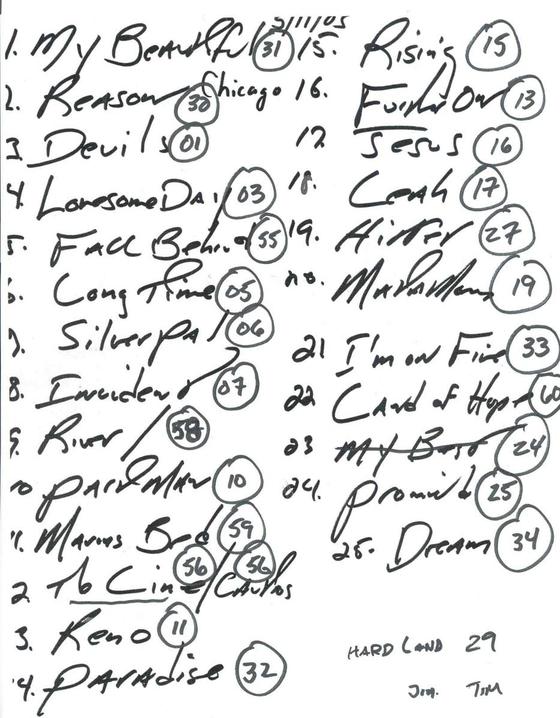 5/11/05
Chicago
1. My Beautiful 31
2. Reason 30
3. Devils 01
4. Lonesome Day 03
5. FALL Behind 55
6. Long Time 05
7. Silver PA 06
8. Incident 07
9. River / 58
10 Part Man 10
11. Marias Bed 59
2 Tb Line / Cautos 56 56
3. Reno 11
4. Paradise 32
15. Rising 15
16. Further On 13
17. Jesus 16
18. Leah 17
19. Hitter 27
20. Matamoros 19
21 I'm on Fire 33
22 Land of Hope
23 My Best 24
24. Promised 25
25. Dream 34
HARD LAND 29
Jim. Tim